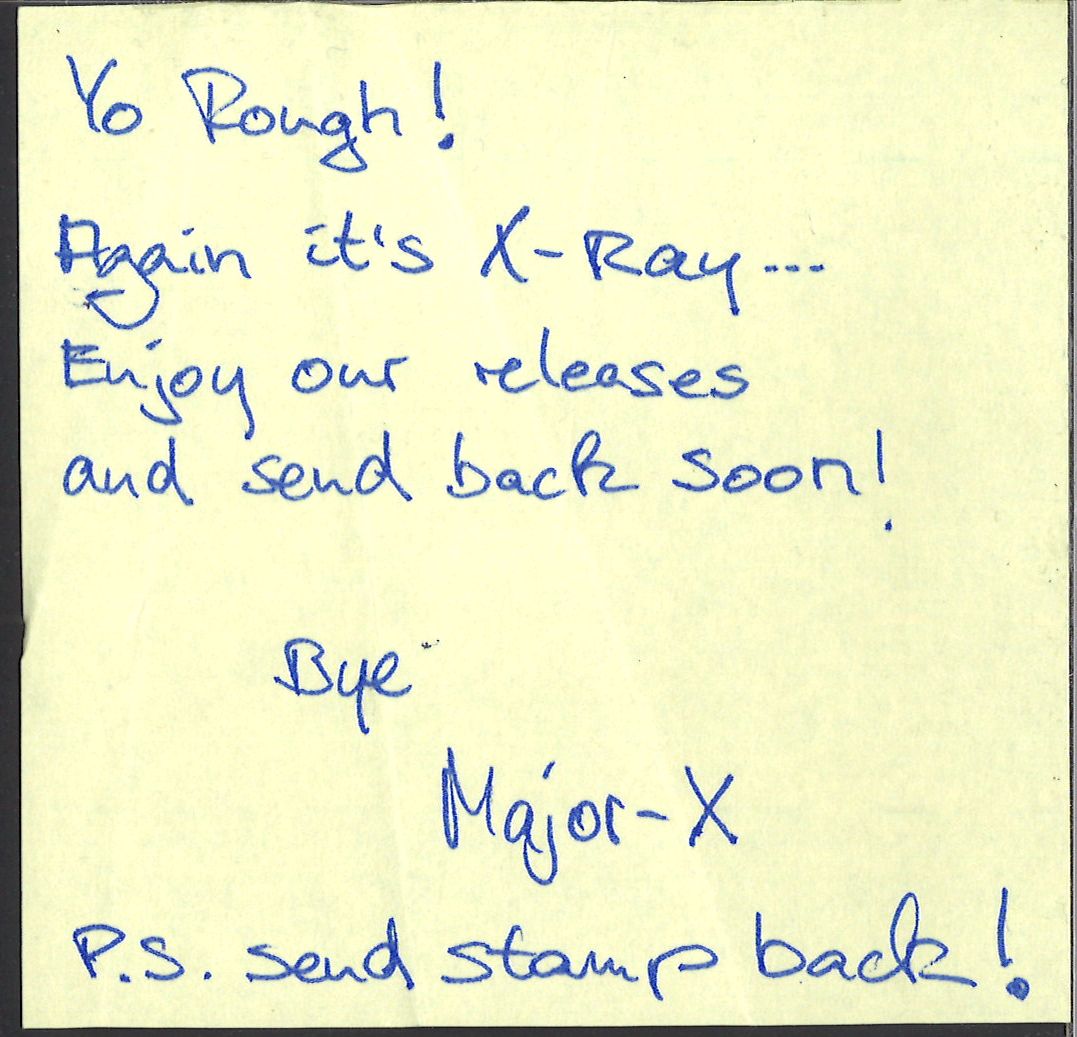 Yo Rough!
Again it's X-Ray...
Enjoy our releases
and send back soon!
Bye
Major-X
P.S. send stamp back!